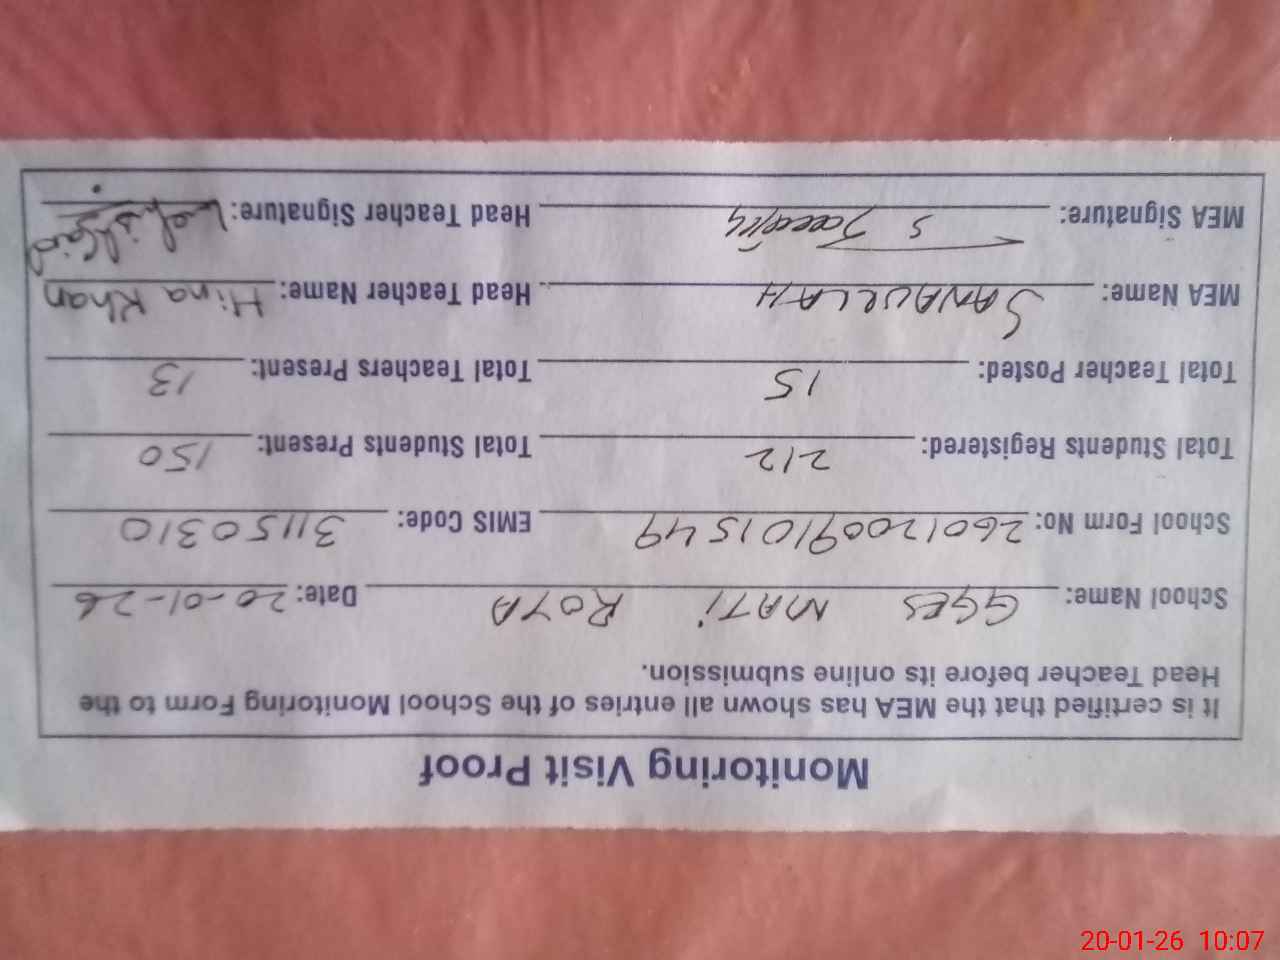 Monitoring Visit Proof
It is certified that the MEA has shown all entries of the School Monitoring Form to the
Head Teacher before its online submission.
School Name: GGES MATI ROTA Date: 20-01-26
School Form No: 26012009101549 EMIS Code: 31150310
Total Students Registered: 212 Total Students Present: 150
Total Teacher Posted: 15 Total Teachers Present: 13
MEA Name: SANAULLAH Head Teacher Name: Hina Khan
MEA Signature: Head Teacher Signature:
20-01-26 10:07